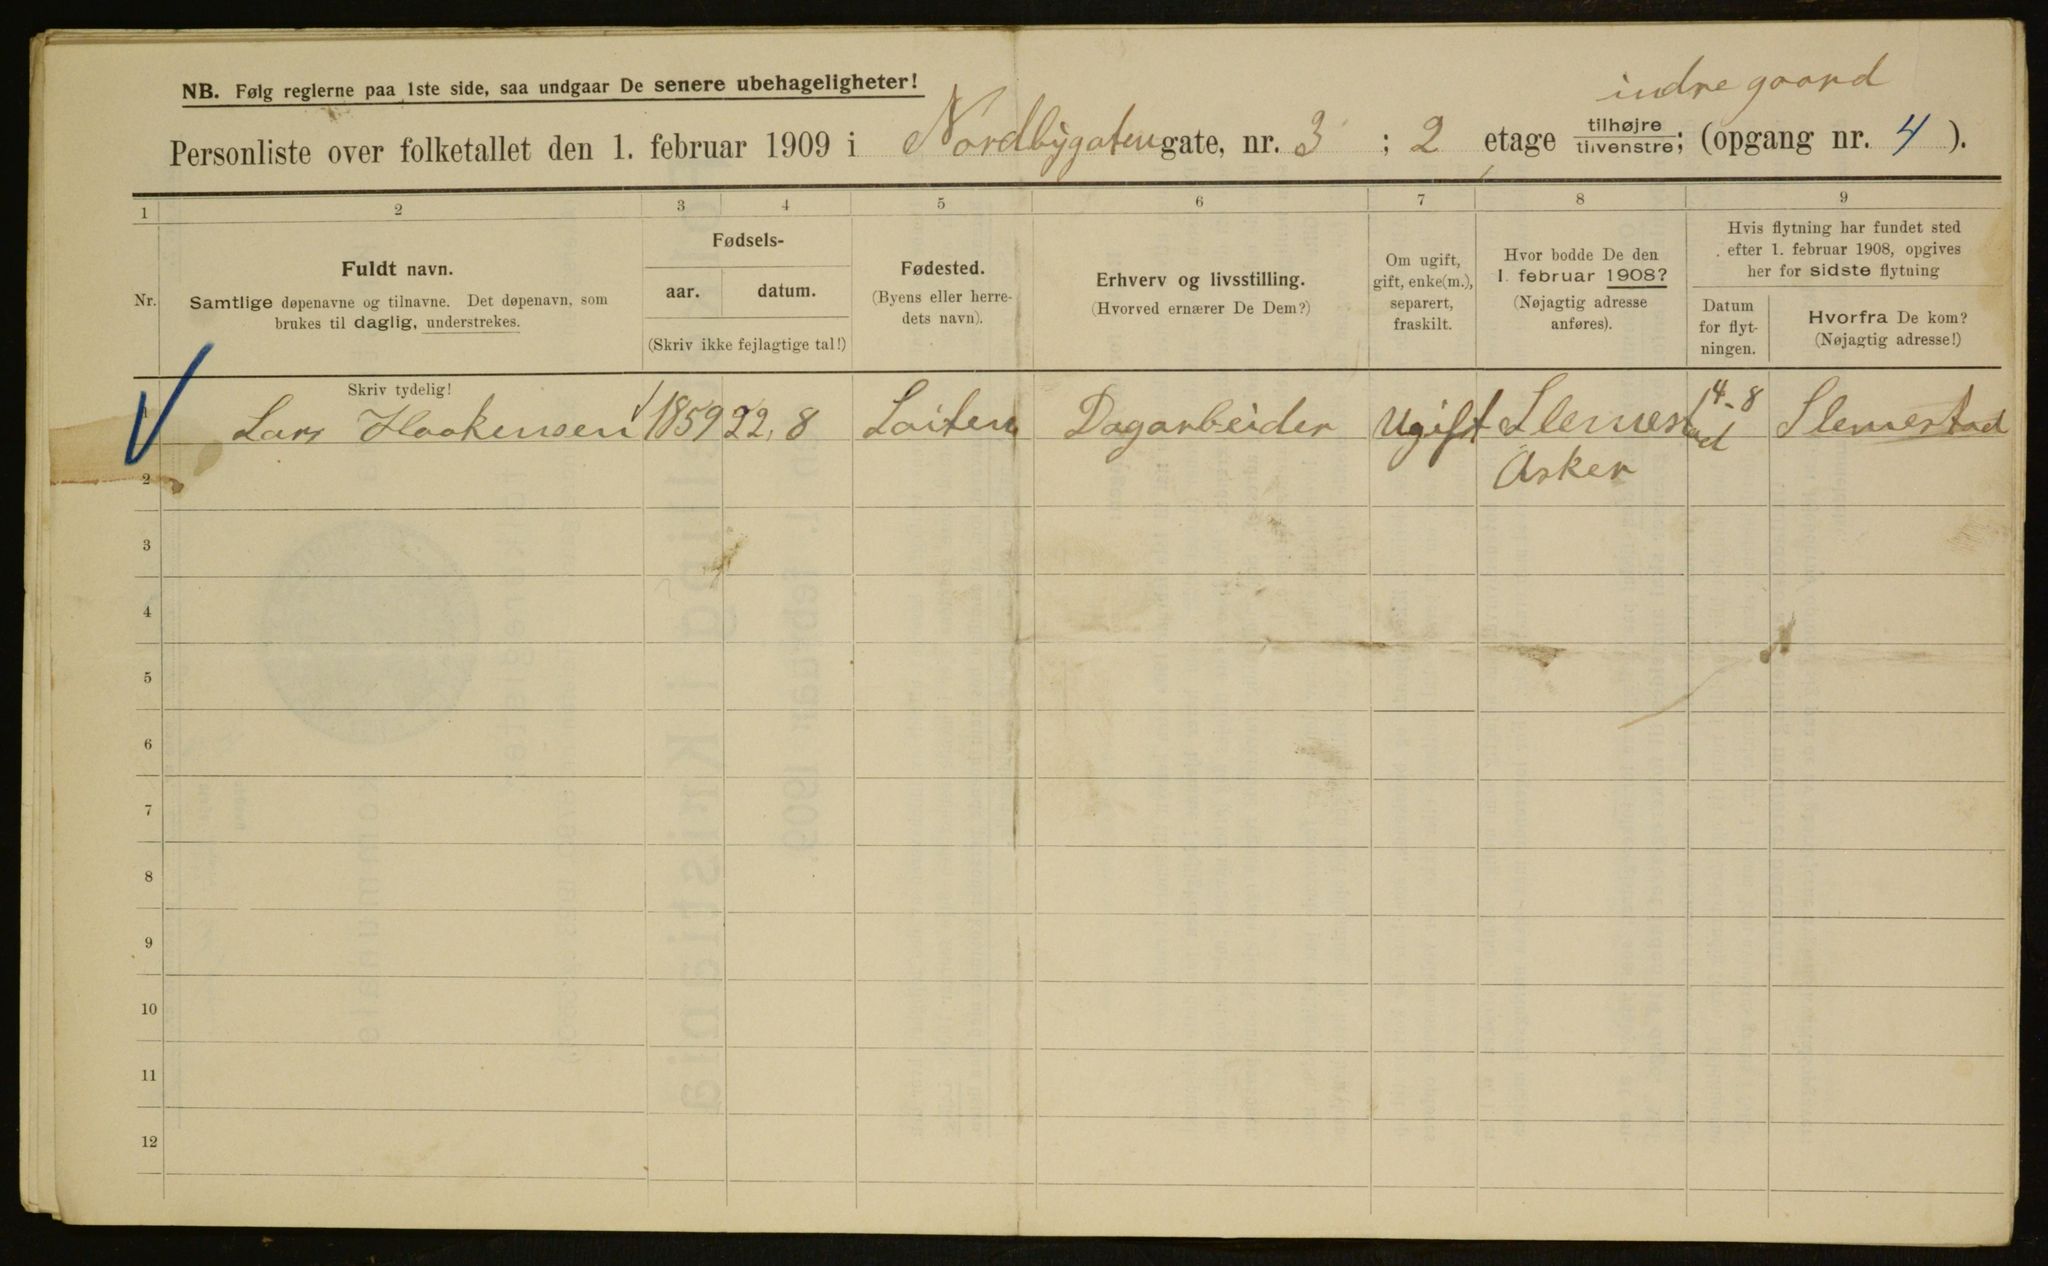 indre gaard
NB. Følg reglerne paa 1ste side, saa undgaar De senere ubehageligheter!
Personliste over folketallet den 1. februar 1909 i Nordbygaten gate, nr. 3 ; 2 etage tilhøjre tilvenstre; (opgang nr. 4 ).
1 2 3 4 5 6 7 8 9
Nr.
Fuldt navn.
Samtlige døpenavne og tilnavne. Det døpenavn, som
brukes til daglig, understrekes.
Fødsels-
aar. datum.
(Skriv ikke fejlagtige tal!)
Fødested.
(Byens eller herre-
dets navn).
Erhverv og livsstilling.
(Hvorved ernærer De Dem?)
Om ugift,
gift, enke(m.),
separert,
fraskilt.
Hvor bodde De den
1. februar 1908?
(Nøjagtig adresse
anføres).
Hvis flytning har fundet sted
efter 1. februar 1908, opgives
her for sidste flytning
Datum
for flyt-
ningen.
Hvorfra De kom?
(Nøjagtig adresse!)
Skriv tydelig!
1 Lars Haakensen 1859 22, 8 Løiten Dagarbeider Ugift Slemestad 14-8 Slemestad
2 Asker
3
4
5
6
7
8
9
10
11
12